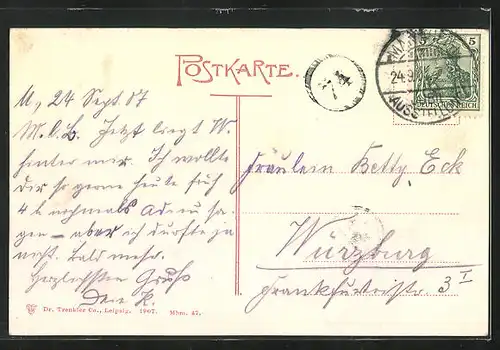 POSTKARTE.
5 5
DEUTSCHES REICH
MANNHEIM
24.9.
AUSSTELLUNG
74
M, 24 Sept. 07
M. l. B. Jetzt liegt W.
hinter mir. Ich wollte
dir so gerne heute früh
4 h nochmals Adieu sa-
gen – aber ich durfte ja
nicht. Bald mehr.
Herzlichsten Gruss
Dein K.
Fräulein Betty Eck
Würzburg
Frankfurterstr. 3 I
Dr. Trenkler Co., Leipzig. 1907. Mhm. 47.